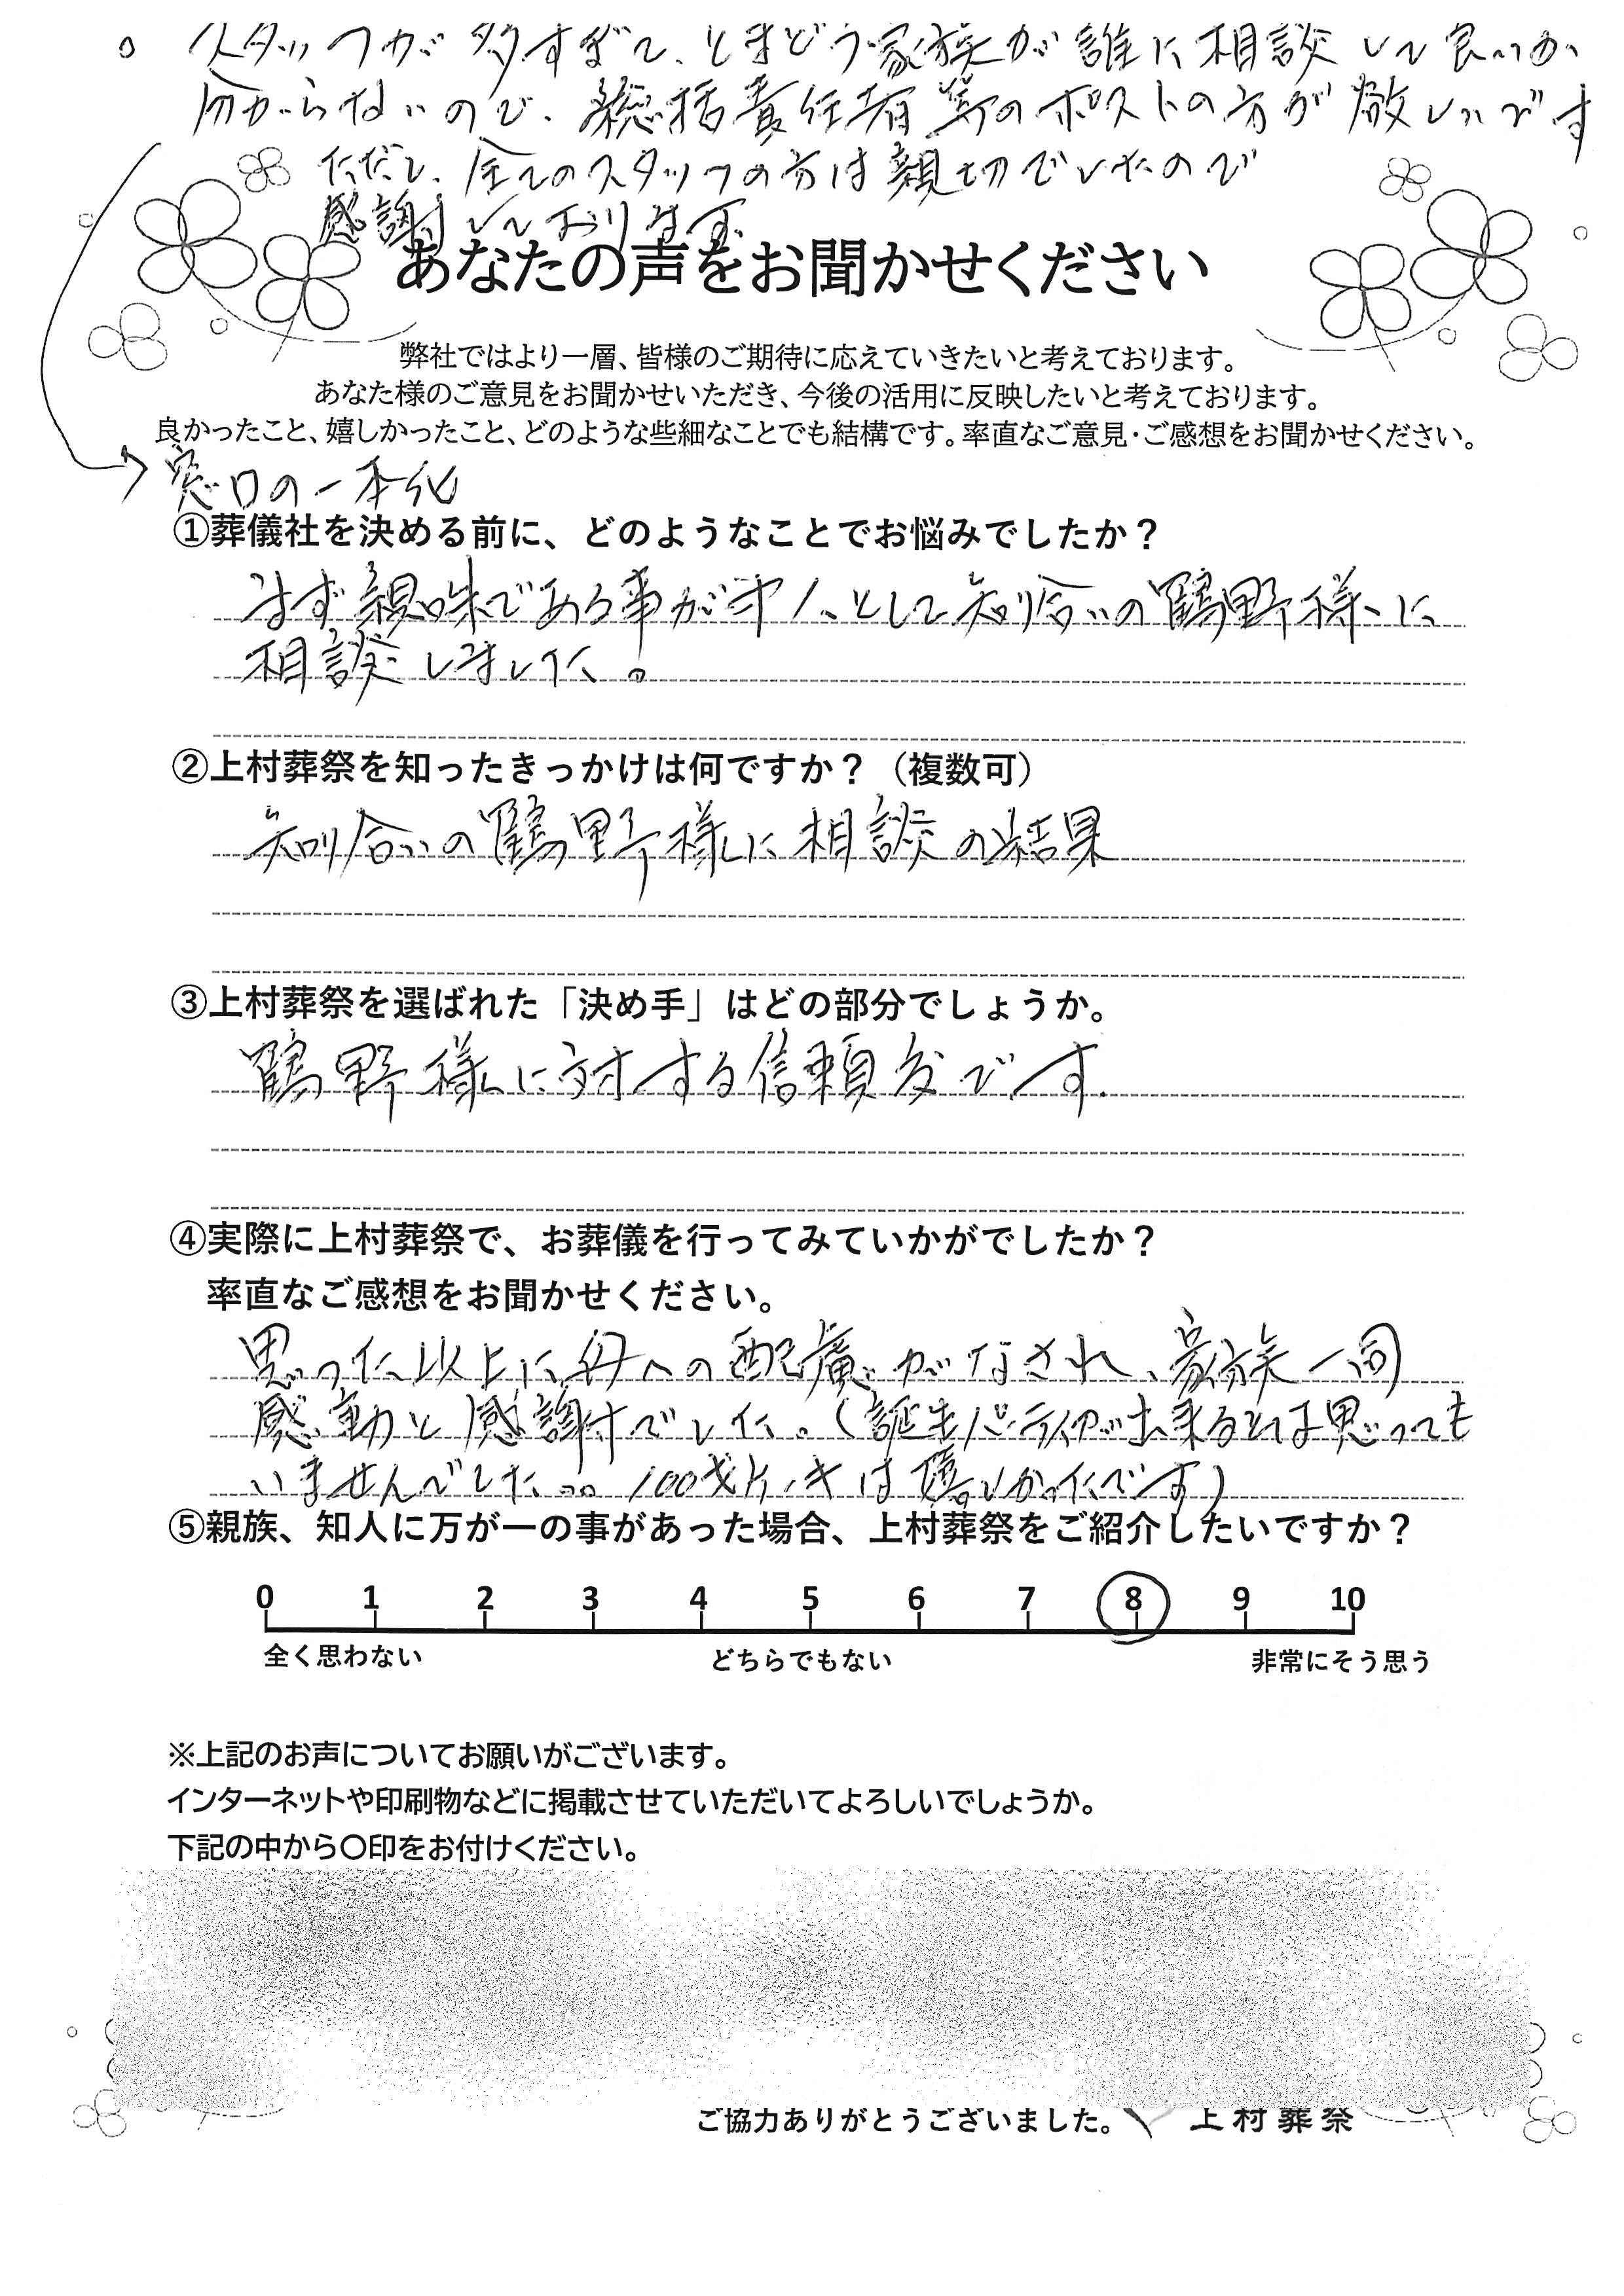 。スタッフが多すぎて、とまどう家族が誰に相談して良いか
分からないので、総括責任者等のポストの方が欲しいです
ただし、全てのスタッフの方は親切でしたので
感謝しております
あなたの声をお聞かせください
弊社ではより一層、皆様のご期待に応えていきたいと考えております。
あなた様のご意見をお聞かせいただき、今後の活用に反映したいと考えております。
良かったこと、嬉しかったこと、どのような些細なことでも結構です。率直なご意見・ご感想をお聞かせください。
窓口の一本化
①葬儀社を決める前に、どのようなことでお悩みでしたか？
まず親味である事が才一として知り合いの鶴野様に
相談しました。
②上村葬祭を知ったきっかけは何ですか？（複数可）
知り合いの鶴野様に相談の結果
③上村葬祭を選ばれた「決め手」はどの部分でしょうか。
鶴野様に対する信頼度です.
④実際に上村葬祭で、お葬儀を行ってみていかがでしたか？
率直なご感想をお聞かせください。
思った以上に母への配慮がなされ、家族一同
感動と感謝でした。（誕生パーティが出来るとは思っても
いませんでした。。100才ケーキは嬉しかったです）
⑤親族、知人に万が一の事があった場合、上村葬祭をご紹介したいですか？
0 1 2 3 4 5 6 7 8 9 10
全く思わない どちらでもない 非常にそう思う
※上記のお声についてお願いがございます。
インターネットや印刷物などに掲載させていただいてよろしいでしょうか。
下記の中から〇印をお付けください。
ご協力ありがとうございました。 上村葬祭